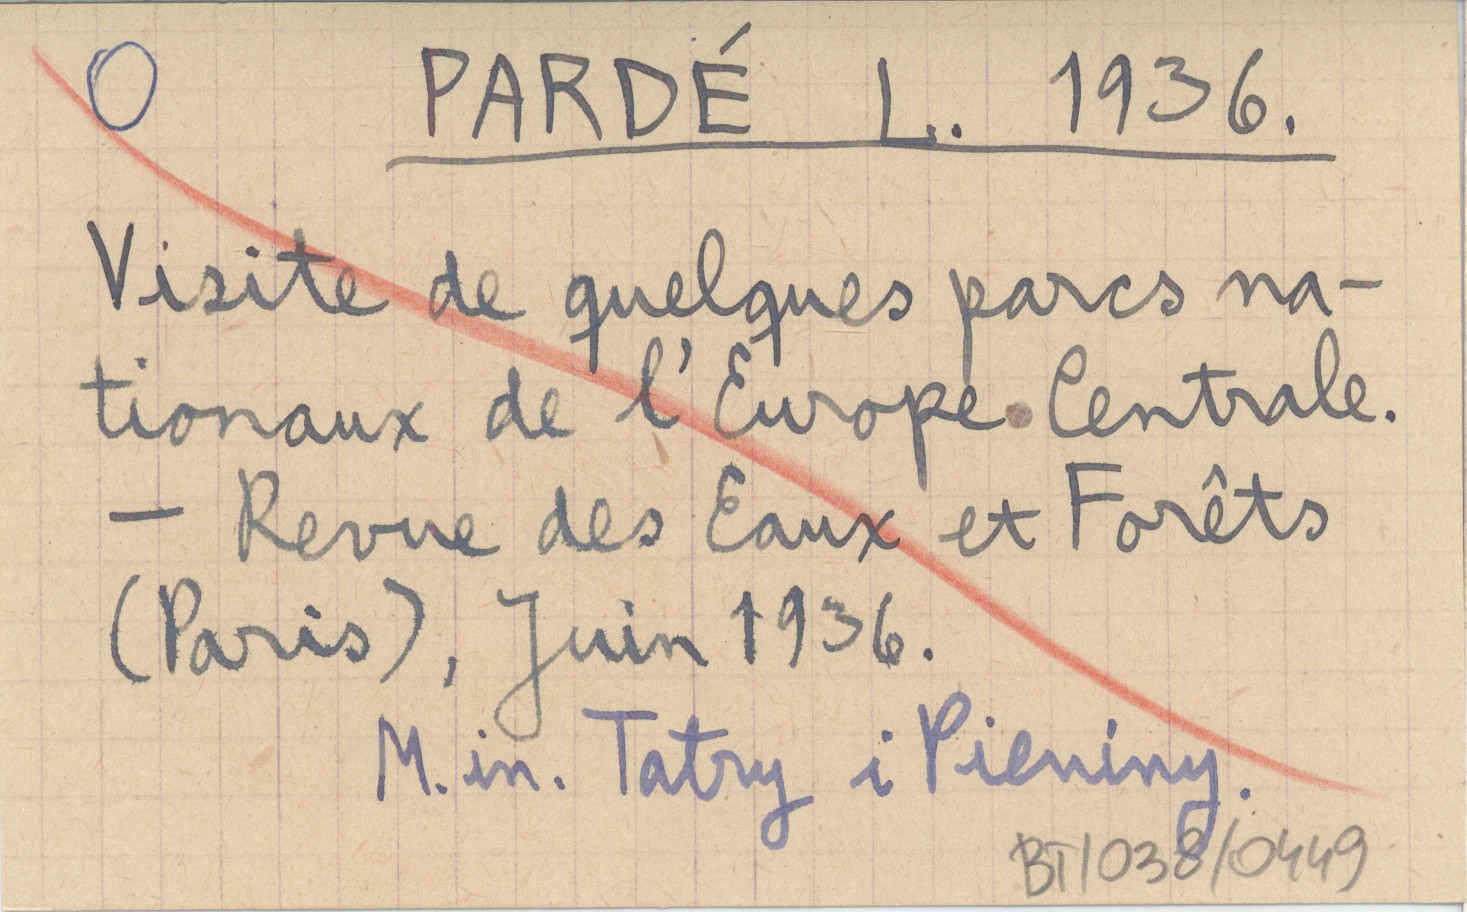 O PARDÉ L. 1936.
Visite de quelques parcs na-
tionaux de l'Europe Centrale.
— Revue des Eaux et Forêts
(Paris), Juin 1936.
M.in. Tatry i Pieniny.
BT/038/0449